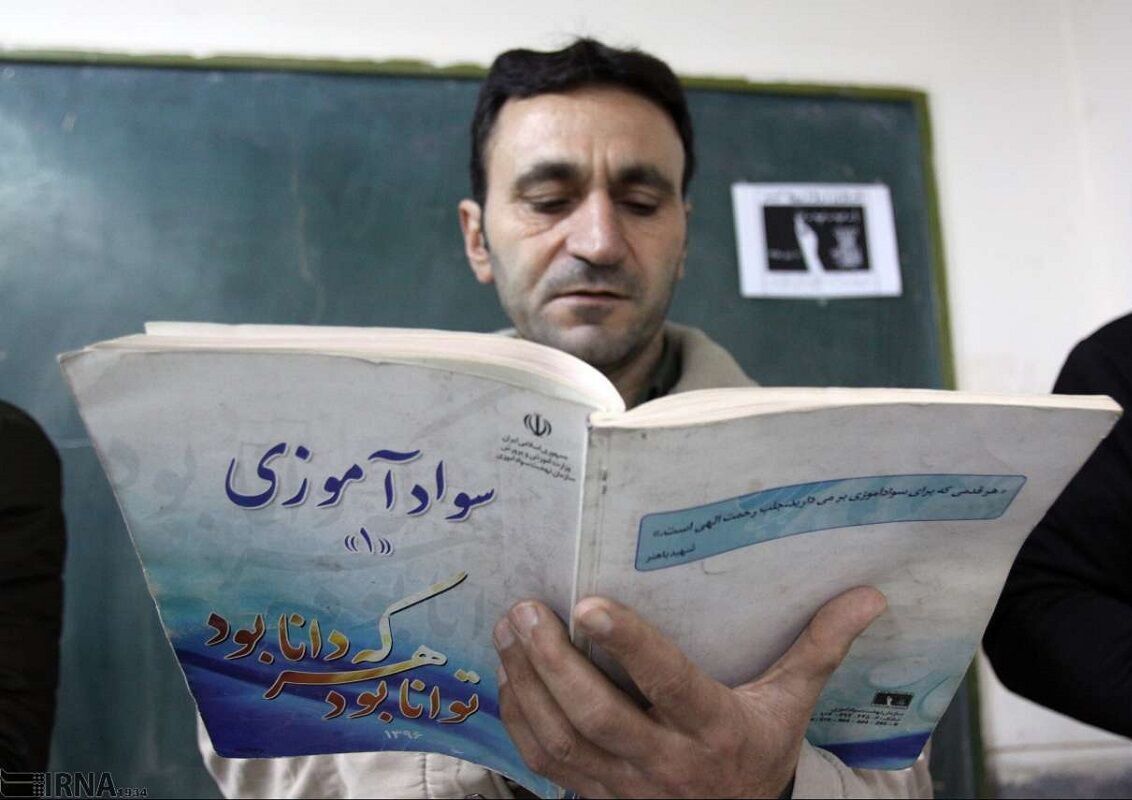 جمهوری اسلامی ایران
وزارت آموزش و پرورش
سازمان نهضت سوادآموزی
سواد آموزی
«۱»
توانا بود
هر که دانا بود
۱۳۹۶
«هر قدمی که برای سوادآموزی بر می دارید، جلب رحمت الهی است.»
شهید باهنر
IRNA 1934